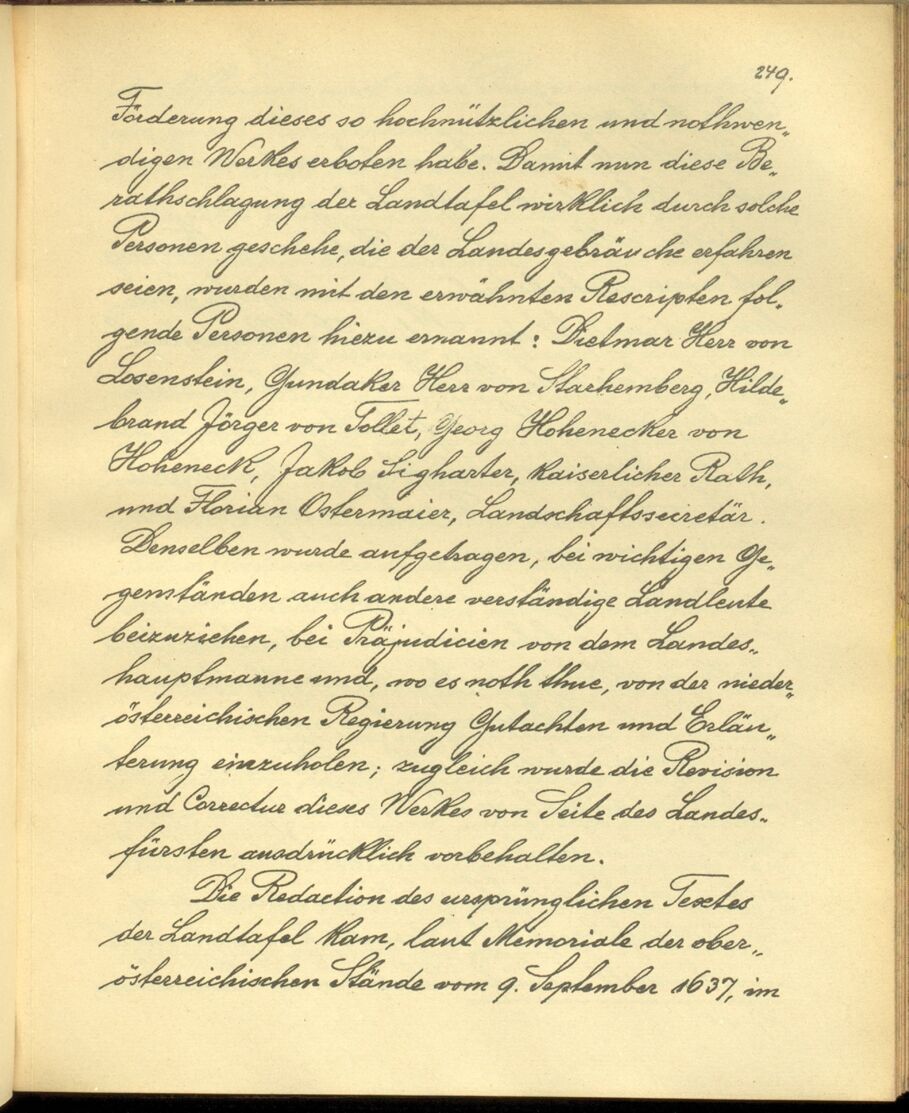 249.
Förderung dieses so hochnützlichen und nothwen„
digen Werkes erboten habe. Damit nun diese Be„
rathschlagung der Landtafel wirklich durch solche
Personen geschehe, die der Landesgebräuche erfahren
seien, wurden mit den erwähnten Rescripten fol„
gende Personen hiezu ernannt: Dietmar Herr von
Losenstein, Gundaker Herr von Starhemberg, Hilde„
brand Jörger von Tollet, Georg Hohenecker von
Hoheneck, Jakob Sigharter, kaiserlicher Rath,
und Florian Ostermaier, Landschaftssecretär.
Denselben wurde aufgetragen, bei wichtigen Ge„
genständen auch andere verständige Landleute
beizuziehen, bei Präjudicien von dem Landes„
hauptmanne und, wo es noth thue, von der nieder„
österreichischen Regierung Gutachten und Erläu„
terung einzuholen; zugleich wurde die Revision
und Correctur dieses Werkes von Seite des Landes„
fürsten ausdrücklich vorbehalten.
Die Redaction des ursprünglichen Textes
der Landtafel kam, laut Memoriale der ober„
österreichischen Stände vom 9. September 1637, im